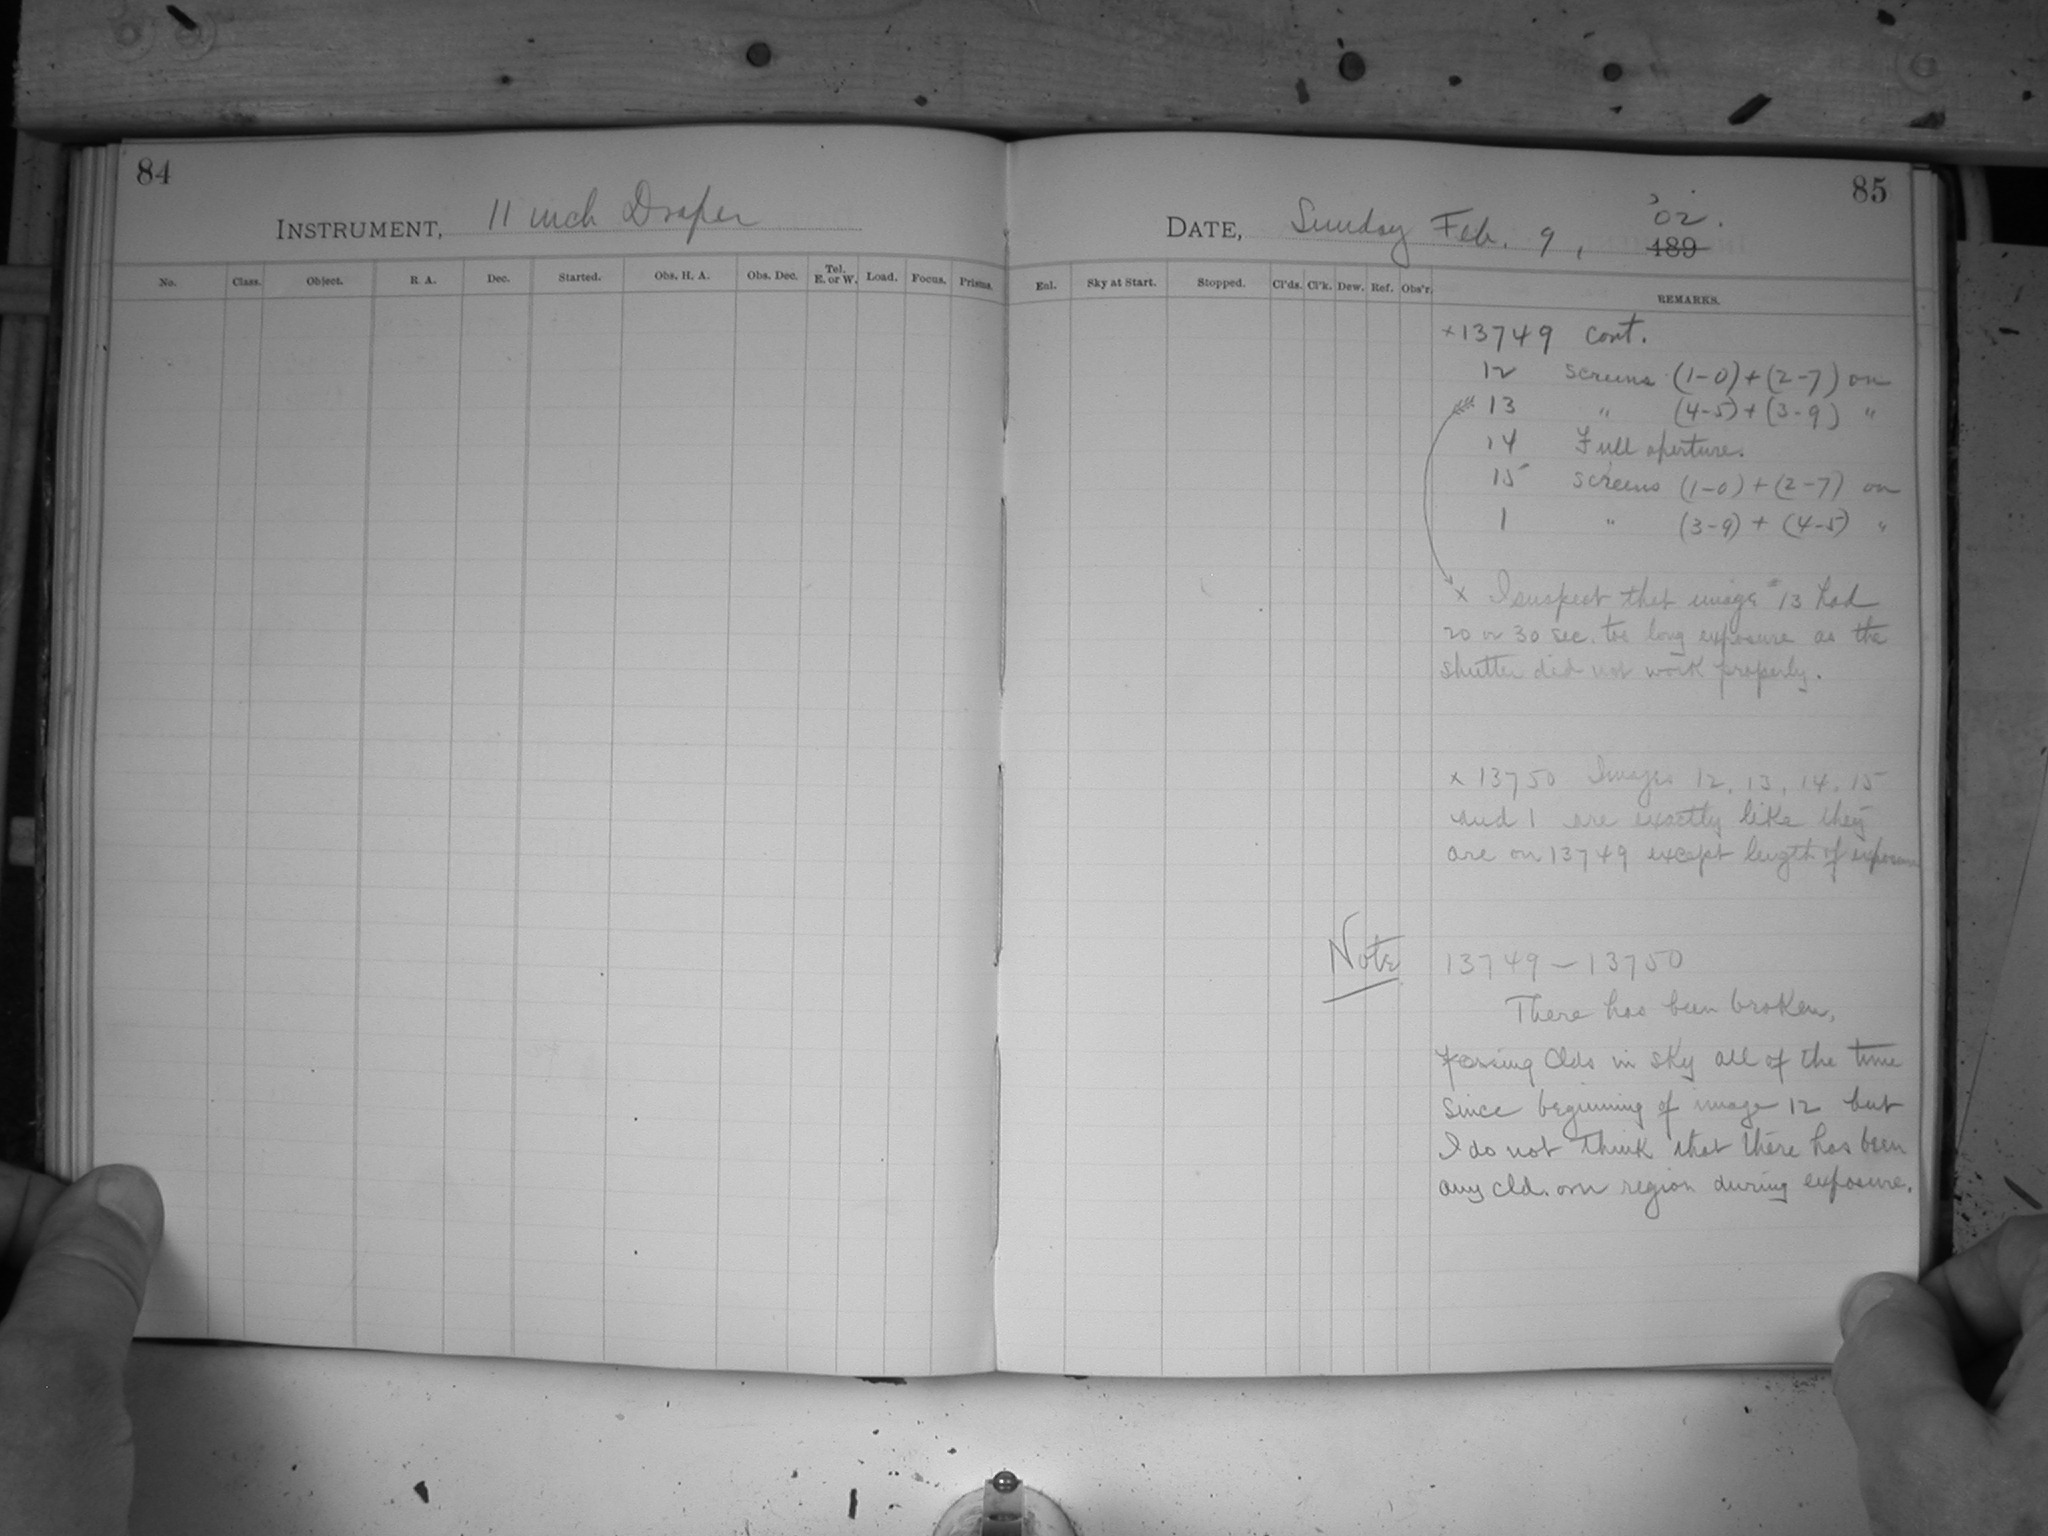 84
INSTRUMENT, 11 inch Draper
No. Class. Object. R. A. Dec. Started. Obs. H. A. Obs. Dec. Tel. E. or W. Load. Focus. Prisms.
85
DATE, Sunday Feb. 9, '02.
189
Enl. Sky at Start. Stopped. Cl'ds. Cl'k. Dew. Ref. Obs'r. REMARKS.
x 13749 cont.
12 screens (1-0) + (2-7) on
13 " (4-5) + (3-9) "
14 Full aperture.
15 screens (1-0) + (2-7) on
1 " (3-9) + (4-5) "
x I suspect that image # 13 had
20 or 30 sec. too long exposure as the
shutter did not work properly.
x 13750 Images 12, 13, 14, 15
and 1 are exactly like they
are on 13749 except length of exposure
Note 13749 – 13750
There has been broken,
passing Clds in sky all of the time
since beginning of image 12 but
I do not think that there has been
any cld. over region during exposure.